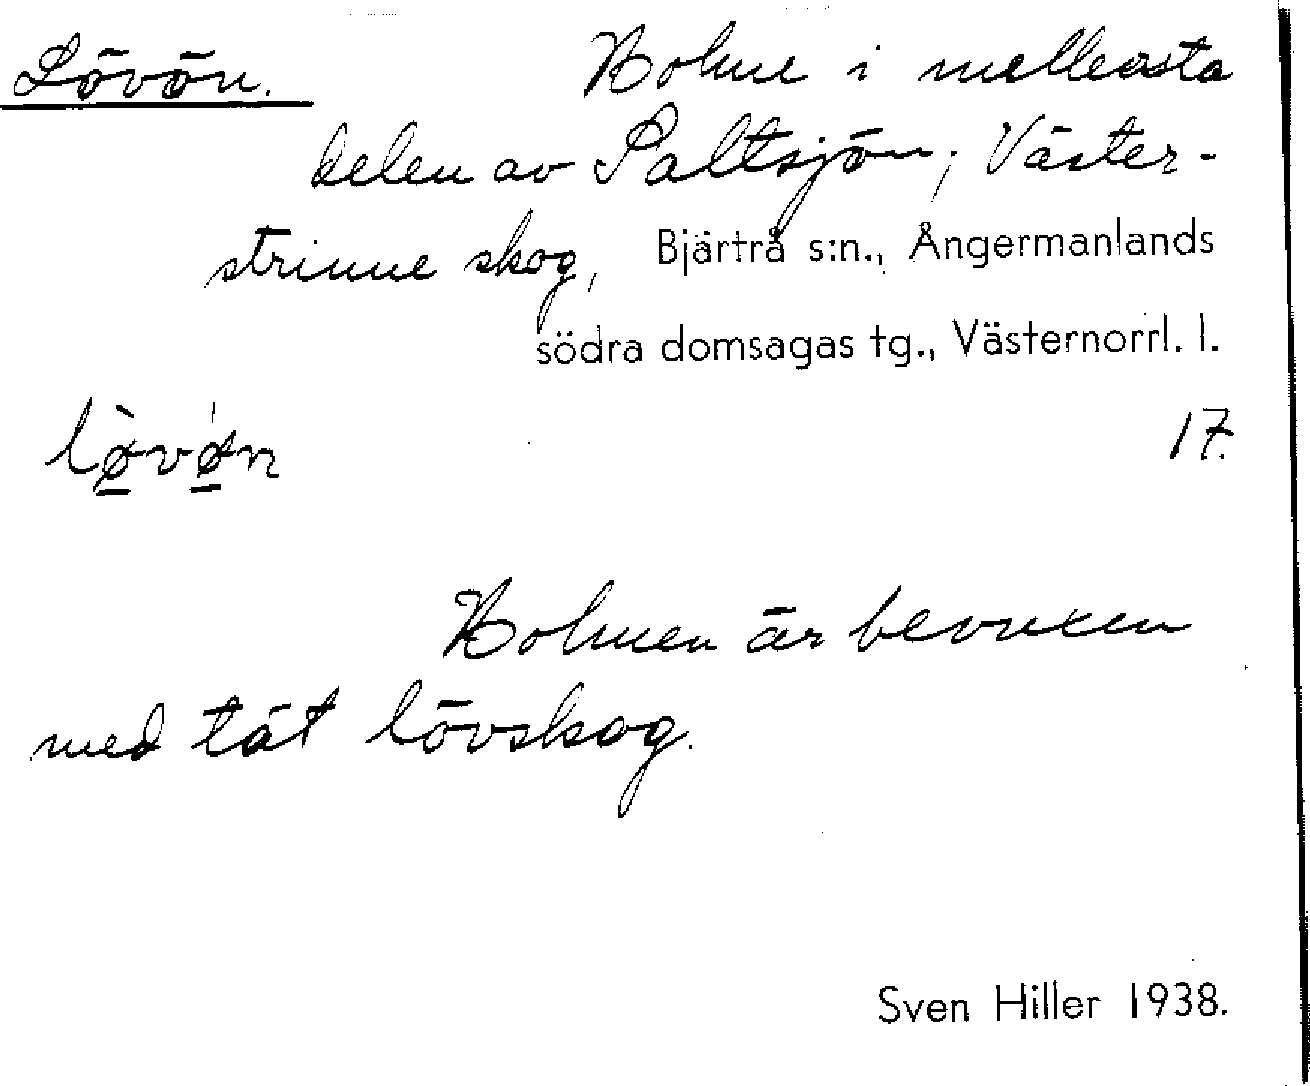 Lövön. Holme i mellersta
delen av Saltsjön, Väster-
strinne skog, Bjärtrå s:n., Ångermanlands
södra domsagas tg., Västernorrl. l.
lø̀vǿn 17.
Holmen är bevuxen
med tät lövskog.
Sven Hiller 1938.